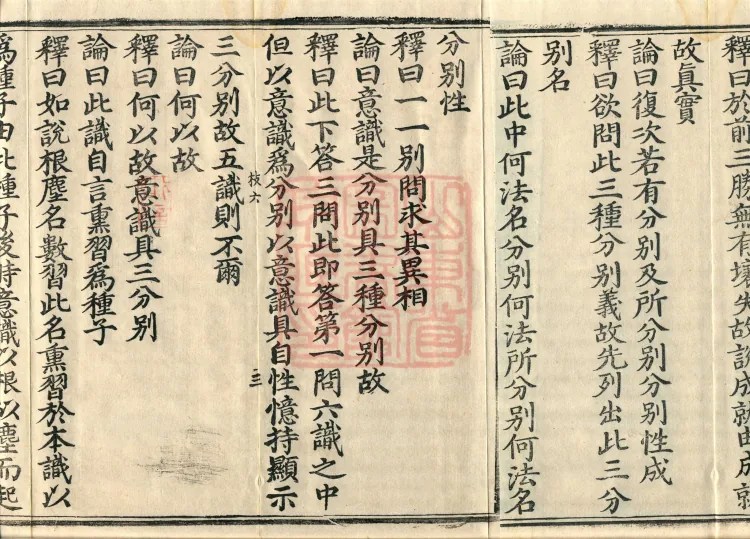 釋曰於前三勝無有境先故說成就由成就
故眞實
論曰復次若有分別及所分別分別性成
釋曰欲問此三種分別義故先列出此三分
别名
論曰此中何法名分別何法所分別何法名
分别性
釋曰一一别問求其異相
論曰意識是分别具三種分别故
釋曰此下答三問此即答第一問六識之中
但以意識爲分别以意識具自性憶持顯示
三分别故五識則不爾
論曰何以故
釋曰何以故意識具三分别
論曰此識自言熏習爲種子
釋曰如說根塵名數習此名熏習於本識以
爲種子由此種子後時意識以根以塵而起